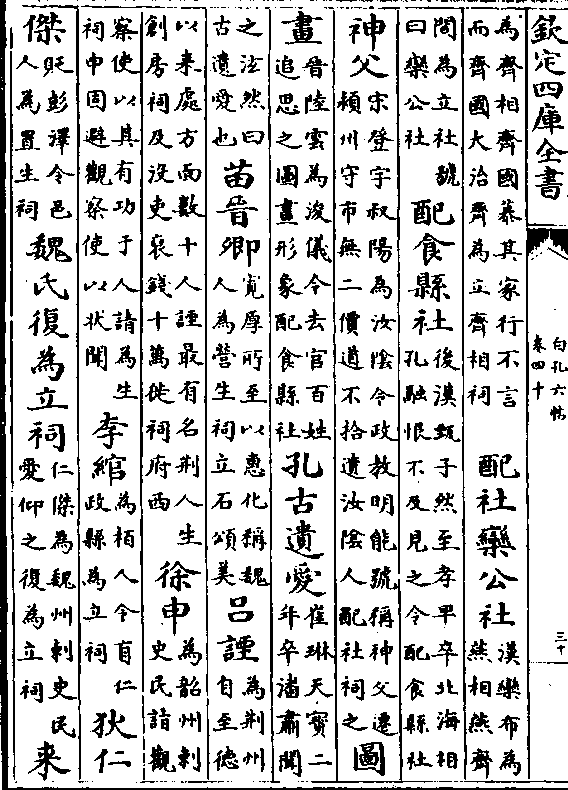 欽定四庫全書
白孔六帖
卷四十
三十
為齊相齊國慕其家行不言
而齊國大治齊為立齊相祠
配社欒公社
漢欒布為
燕相燕齊
間為立社號
曰欒公社
配食縣社
後漢甄子然至孝早卒北海相
孔融恨不及見之令配食縣社
神父
宋登字叔陽為汝陰令政教明能號稱神父遷
潁州守市無二價道不拾遺汝陰人配社祠之
圖
畫
晉陸雲為浚儀令去官百姓
追思之圖畫形象配食縣社
孔古遺愛
崔琳天寶二
年卒潘肅聞
之泫然曰
古遺愛也
苗晉卿
寬厚所至以惠化稱魏
人為營生祠立石頌美
呂諲
為荆州
自至德
以來處方面數十人諲最有名荆人生
創房祠及沒吏裒錢十萬徙祠府西
徐申
為韶州刺
史民請觀
察使以其有功于人請為生
祠申固避觀察使以狀聞
李綰
為栢人令有仁
政縣為立祠
狄仁
傑
貶彭澤令邑
人為置生祠
魏氏復為立祠
仁傑為魏州刺史民
愛仰之復為立祠
來